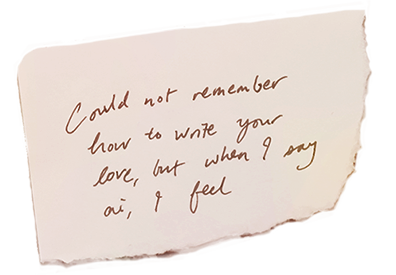 Could not remember
how to write your
love, but when I say
ai, I feel